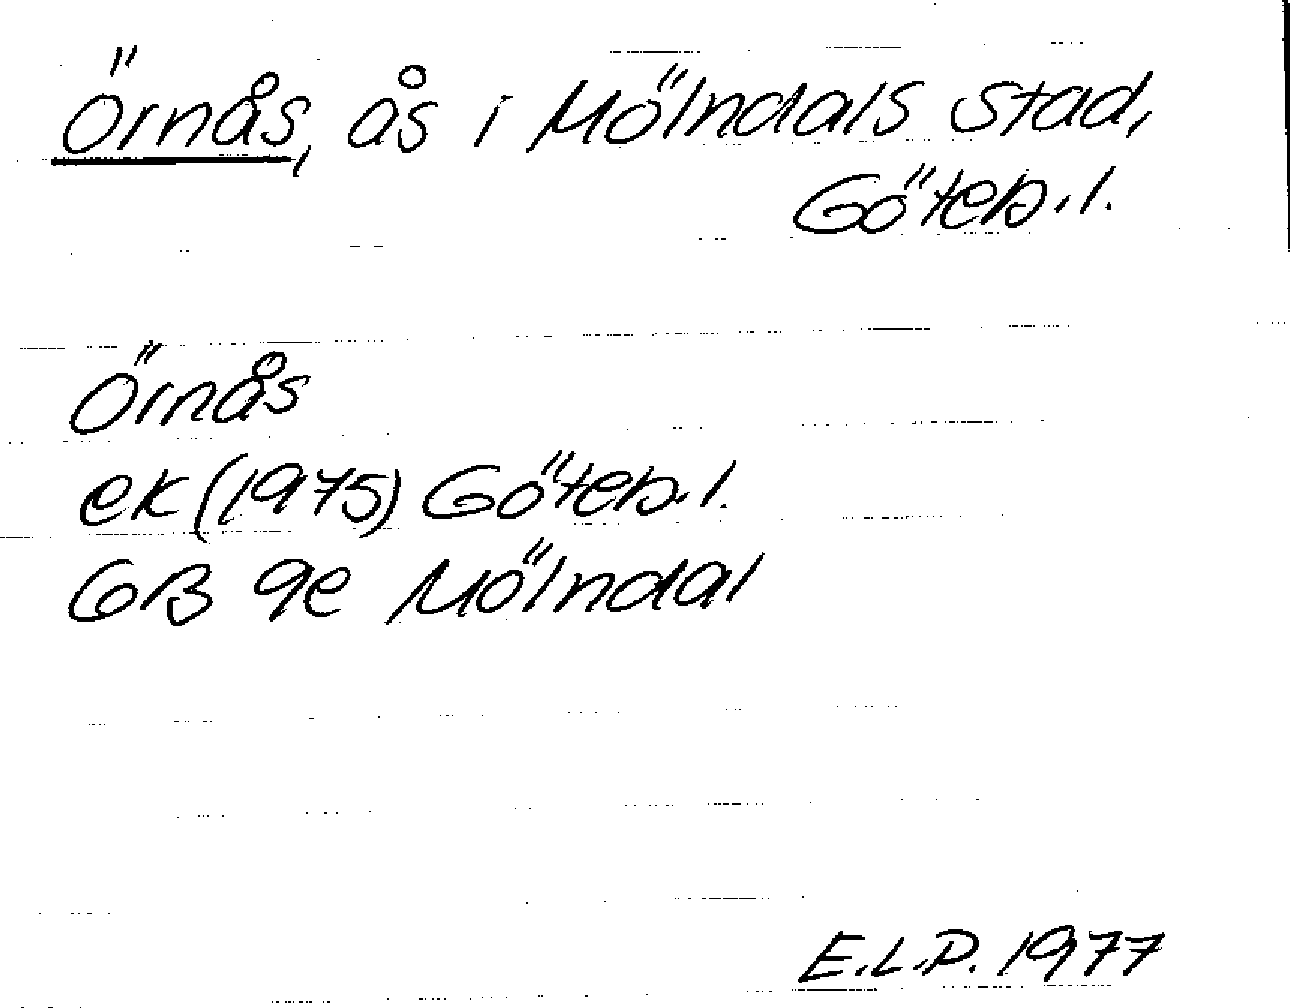 Örnås, ås i Mölndals stad,
Göteb.l.
Örnås
ek (1975) Göteb.l.
GB 9e Mölndal
E.L.P. 1977